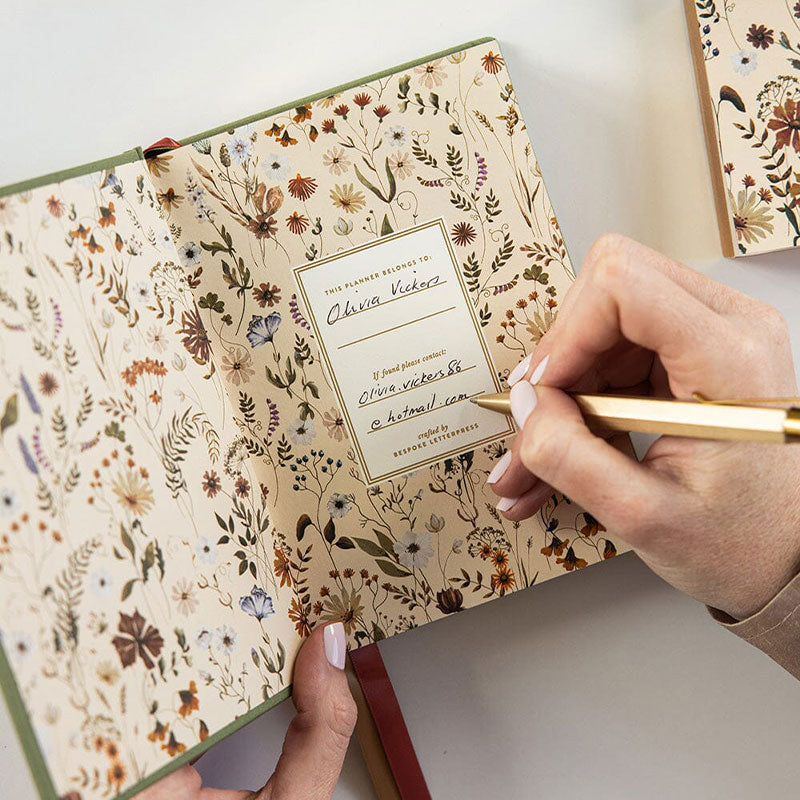 THIS PLANNER BELONGS TO:
Olivia Vickers
If found please contact:
Olivia.vickers86
@hotmail.com
crafted by
BESPOKE LETTERPRESS